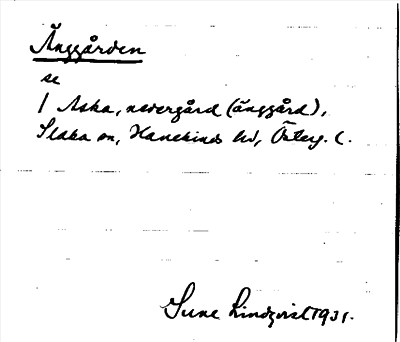 Änggården
se
1 Aska, nedergård (änggård),
Slaka sn, Hanekinds hd, Österg. l.
Sune Lindqvist 1931.